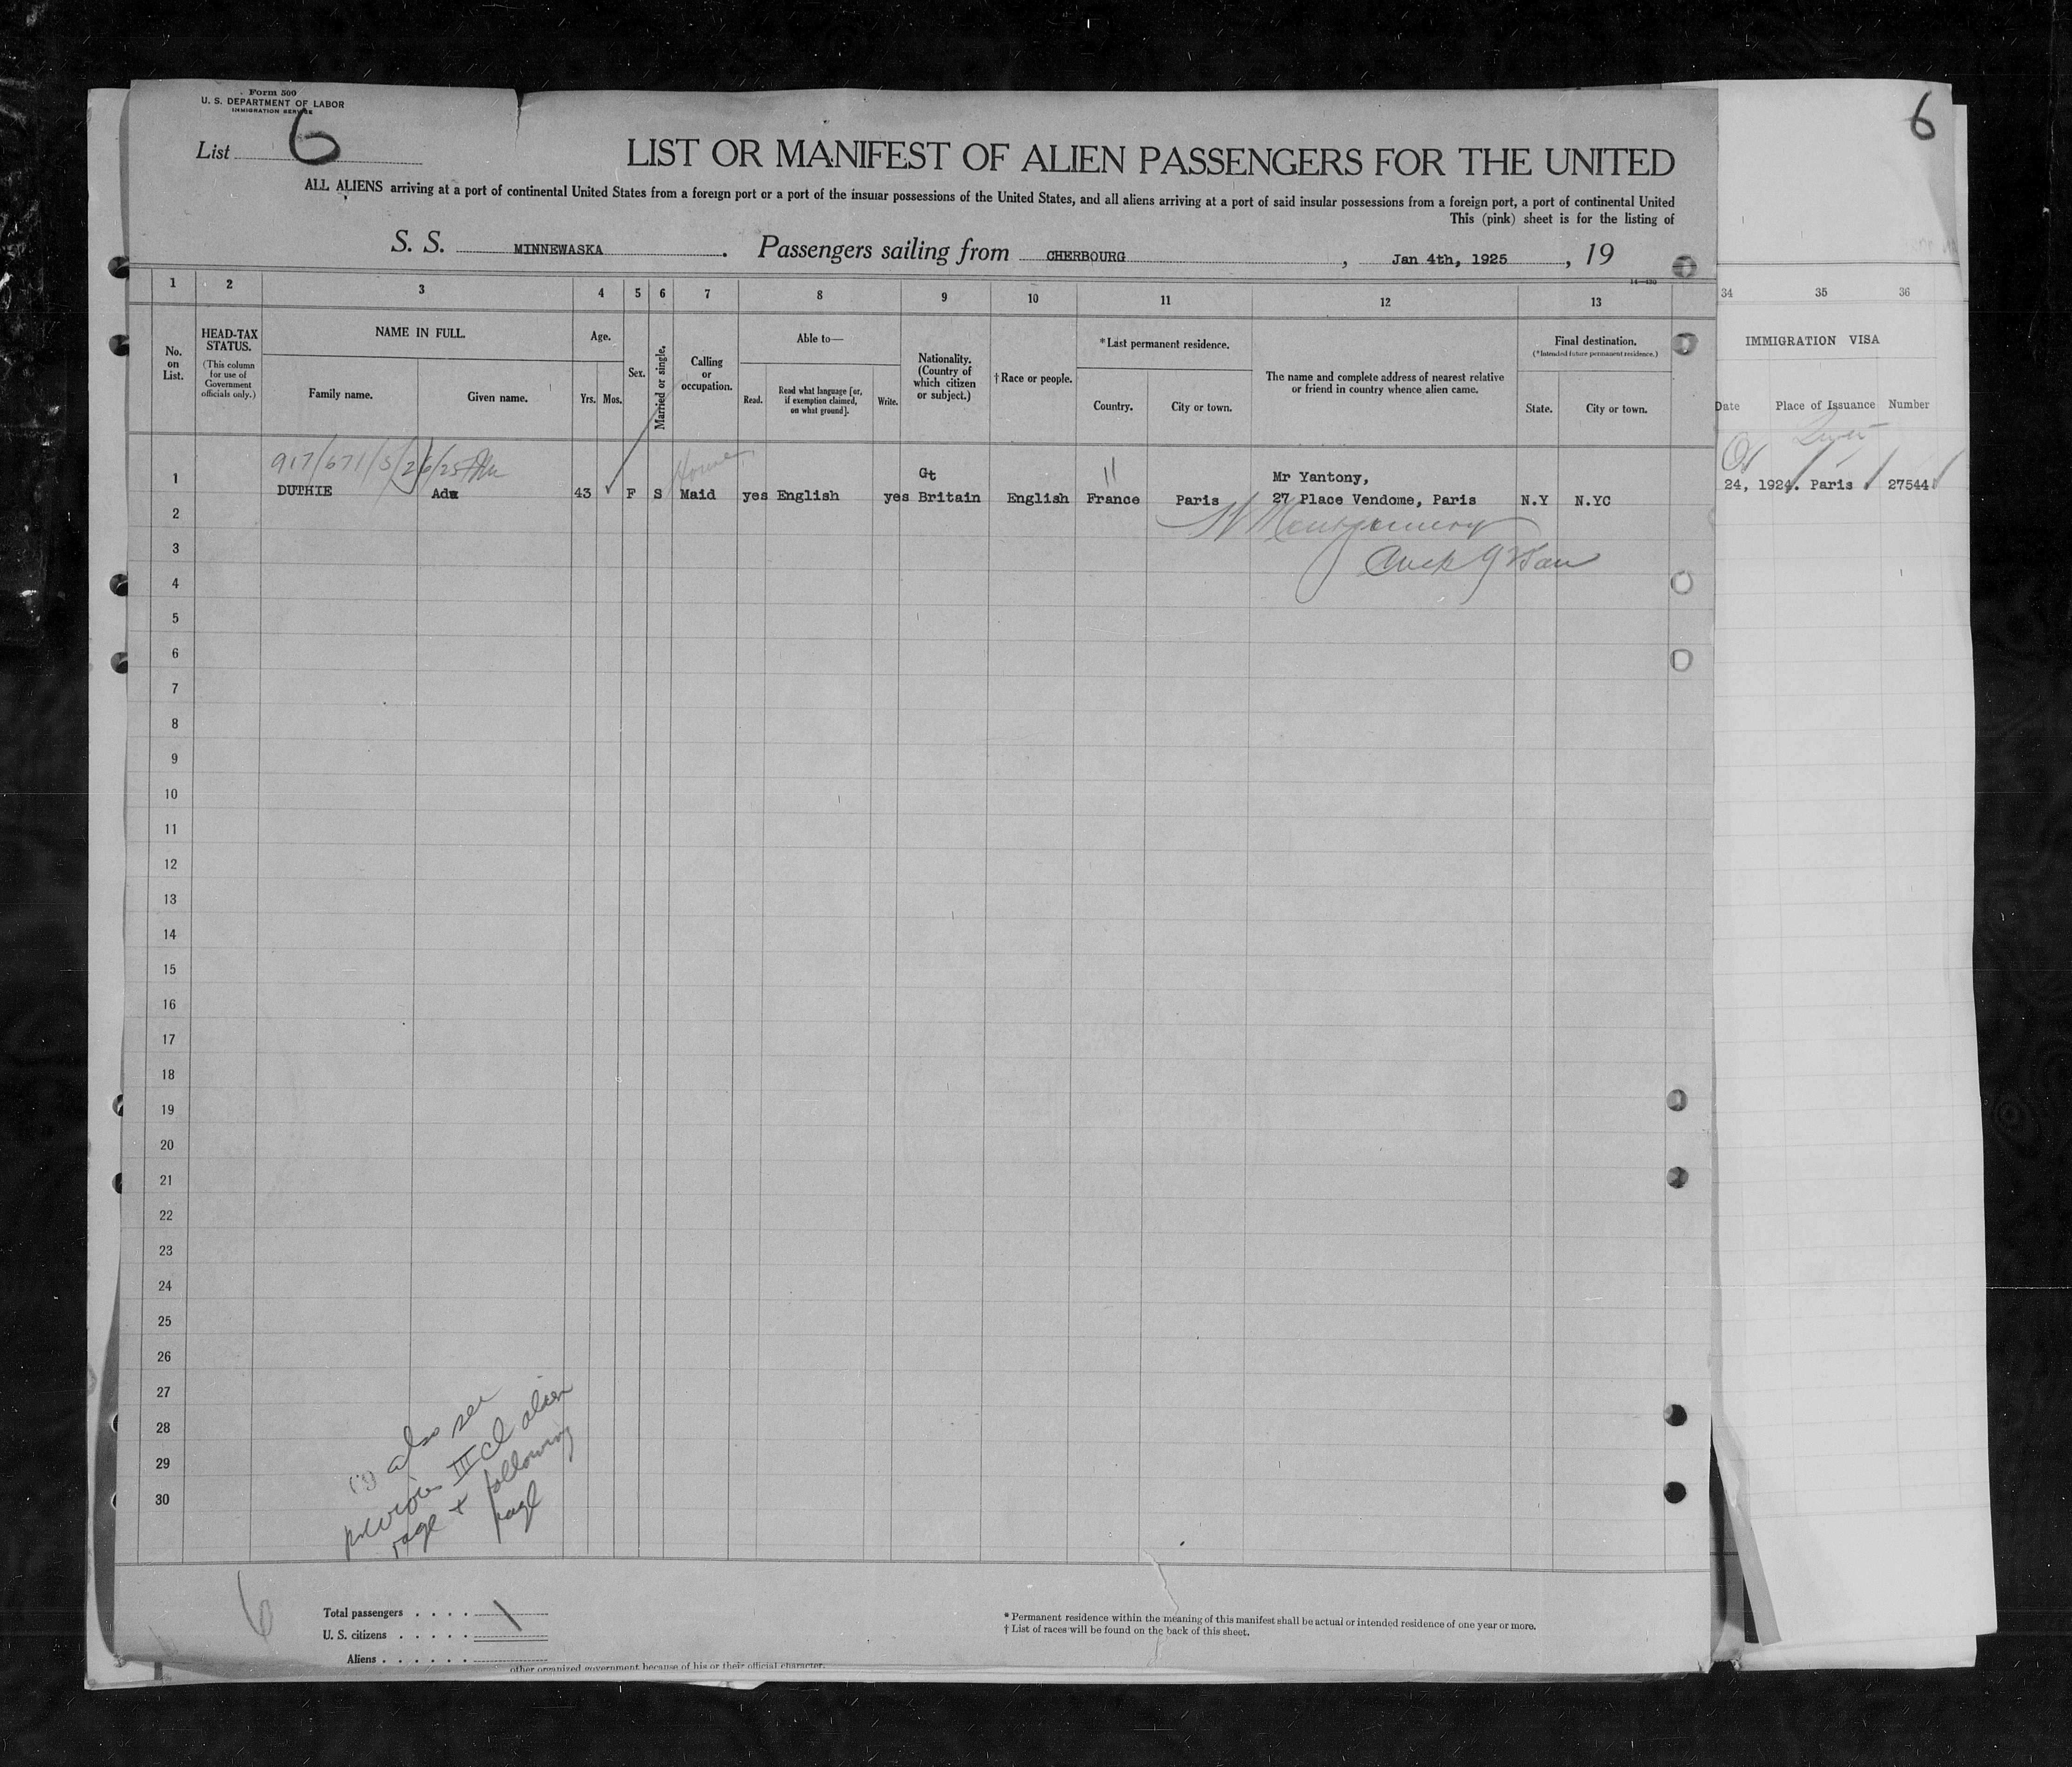 Form 500
U. S. DEPARTMENT OF LABOR
IMMIGRATION SERVICE
List 6
6
LIST OR MANIFEST OF ALIEN PASSENGERS FOR THE UNITED
ALL ALIENS arriving at a port of continental United States from a foreign port or a port of the insular possessions of the United States, and all aliens arriving at a port of said insular possessions from a foreign port, a port of continental United
This (pink) sheet is for the listing of
S. S. MINNEWASKA. Passengers sailing from CHERBOURG, Jan 4th, 1925, 19
1 2 3 4 5 6 7 8 9 10 11 12 13 34 35 36
No. on List.
HEAD-TAX STATUS.
(This column for use of Government officials only.)
NAME IN FULL.
Family name.
Given name.
Age.
Yrs. Mos.
Sex.
Married or single.
Calling or occupation.
Able to—
Read.
Read what language [or, if exemption claimed, on what ground].
Write.
Nationality. (Country of which citizen or subject.)
† Race or people.
* Last permanent residence.
Country.
City or town.
The name and complete address of nearest relative or friend in country whence alien came.
Final destination.
(* Intended future permanent residence.)
State.
City or town.
IMMIGRATION VISA
Date Place of Issuance Number
917/671/5/26/25
1 DUTHIE Ada 43 F S Maid yes English yes Gt Britain English France Paris Mr Yantony, 27 Place Vendome, Paris N.Y N.YC 24, 1924. Paris 27544
Montgomery
2
3
4
5
6
7
8
9
10
11
12
13
14
15
16
17
18
19
20
21
22
23
24
25
26
27
28
29
30
(1) also see
previous III cl alien
page + following
page
6
Total passengers . . . . 1
U. S. citizens . . . . .
Aliens . . . . . .
* Permanent residence within the meaning of this manifest shall be actual or intended residence of one year or more.
† List of races will be found on the back of this sheet.
other organized government because of his or their official character.